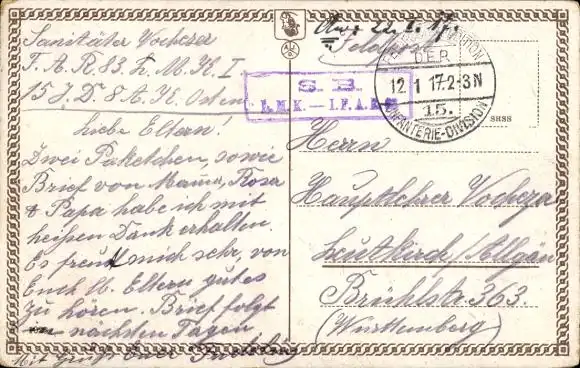 Sanitäter Vochezer
F. A. R. 83. L. M. K. I
15 J. D. 8 A. K. Osten
Liebe Eltern!
Zwei Paketchen, sowie
Brief von Mama, Rosa
& Papa habe ich mit
heißen Dank erhalten.
Es freut mich sehr, von
Euch lb. Eltern gutes
zu hören. Brief folgt
in nächsten Tagen.
Mit Gruß Euer
S. B.
L. M. K. — I. F. A. R.
Feldpost
DER
12. 1 17. 2-3N
15.
INFANTERIE-DIVISION
8H88
Herrn
Hauptlehrer Vochezer
Leutkirch/Allgäu
Brühlstr. 363.
(Württemberg)